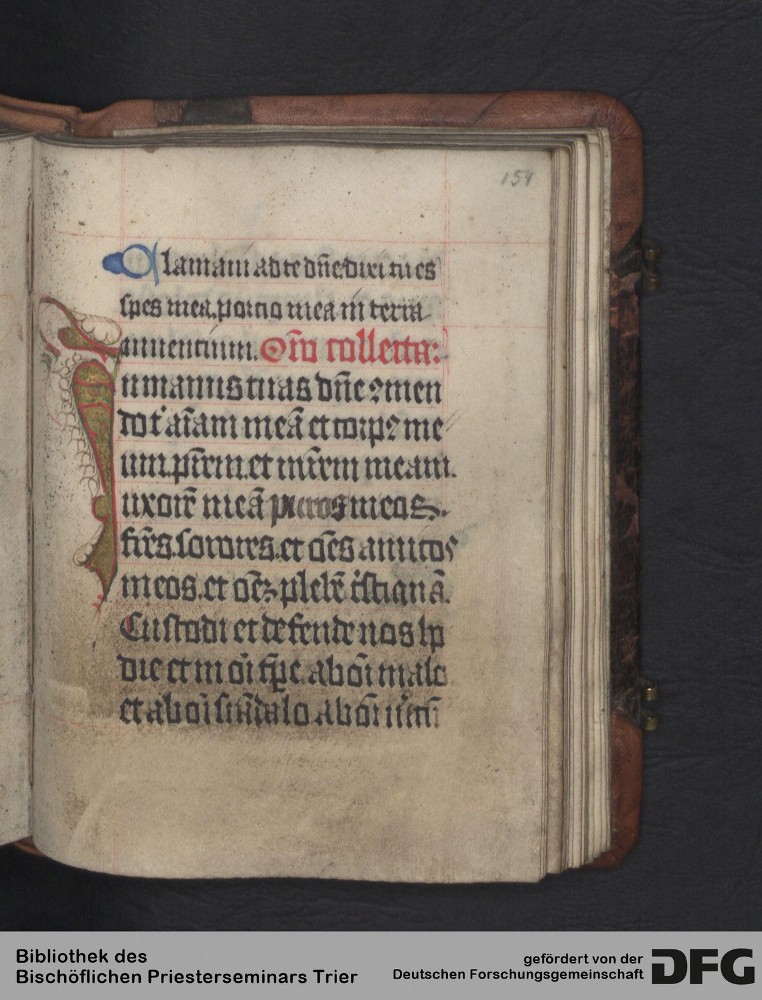 154
Clamaui ad te dn̄e. dixi tu es
spes mea. portio mea in terra
uiuentium. Or̄o collecta:
In manus tuas dn̄e
aīam meā et corpꝰ me
um. pr̄em. et mr̄em meam.
uxorē meā pueros meos
frēs. sorores. et oēs amicos
meos. et oēꝫ plebē xp̄ianā.
Custodi et defende nos
die et in oī tp̄e. ab oī malo
et ab oī scādalo ab oī
Bibliothek des
Bischöflichen Priesterseminars Trier
gefördert von der
Deutschen Forschungsgemeinschaft
DFG